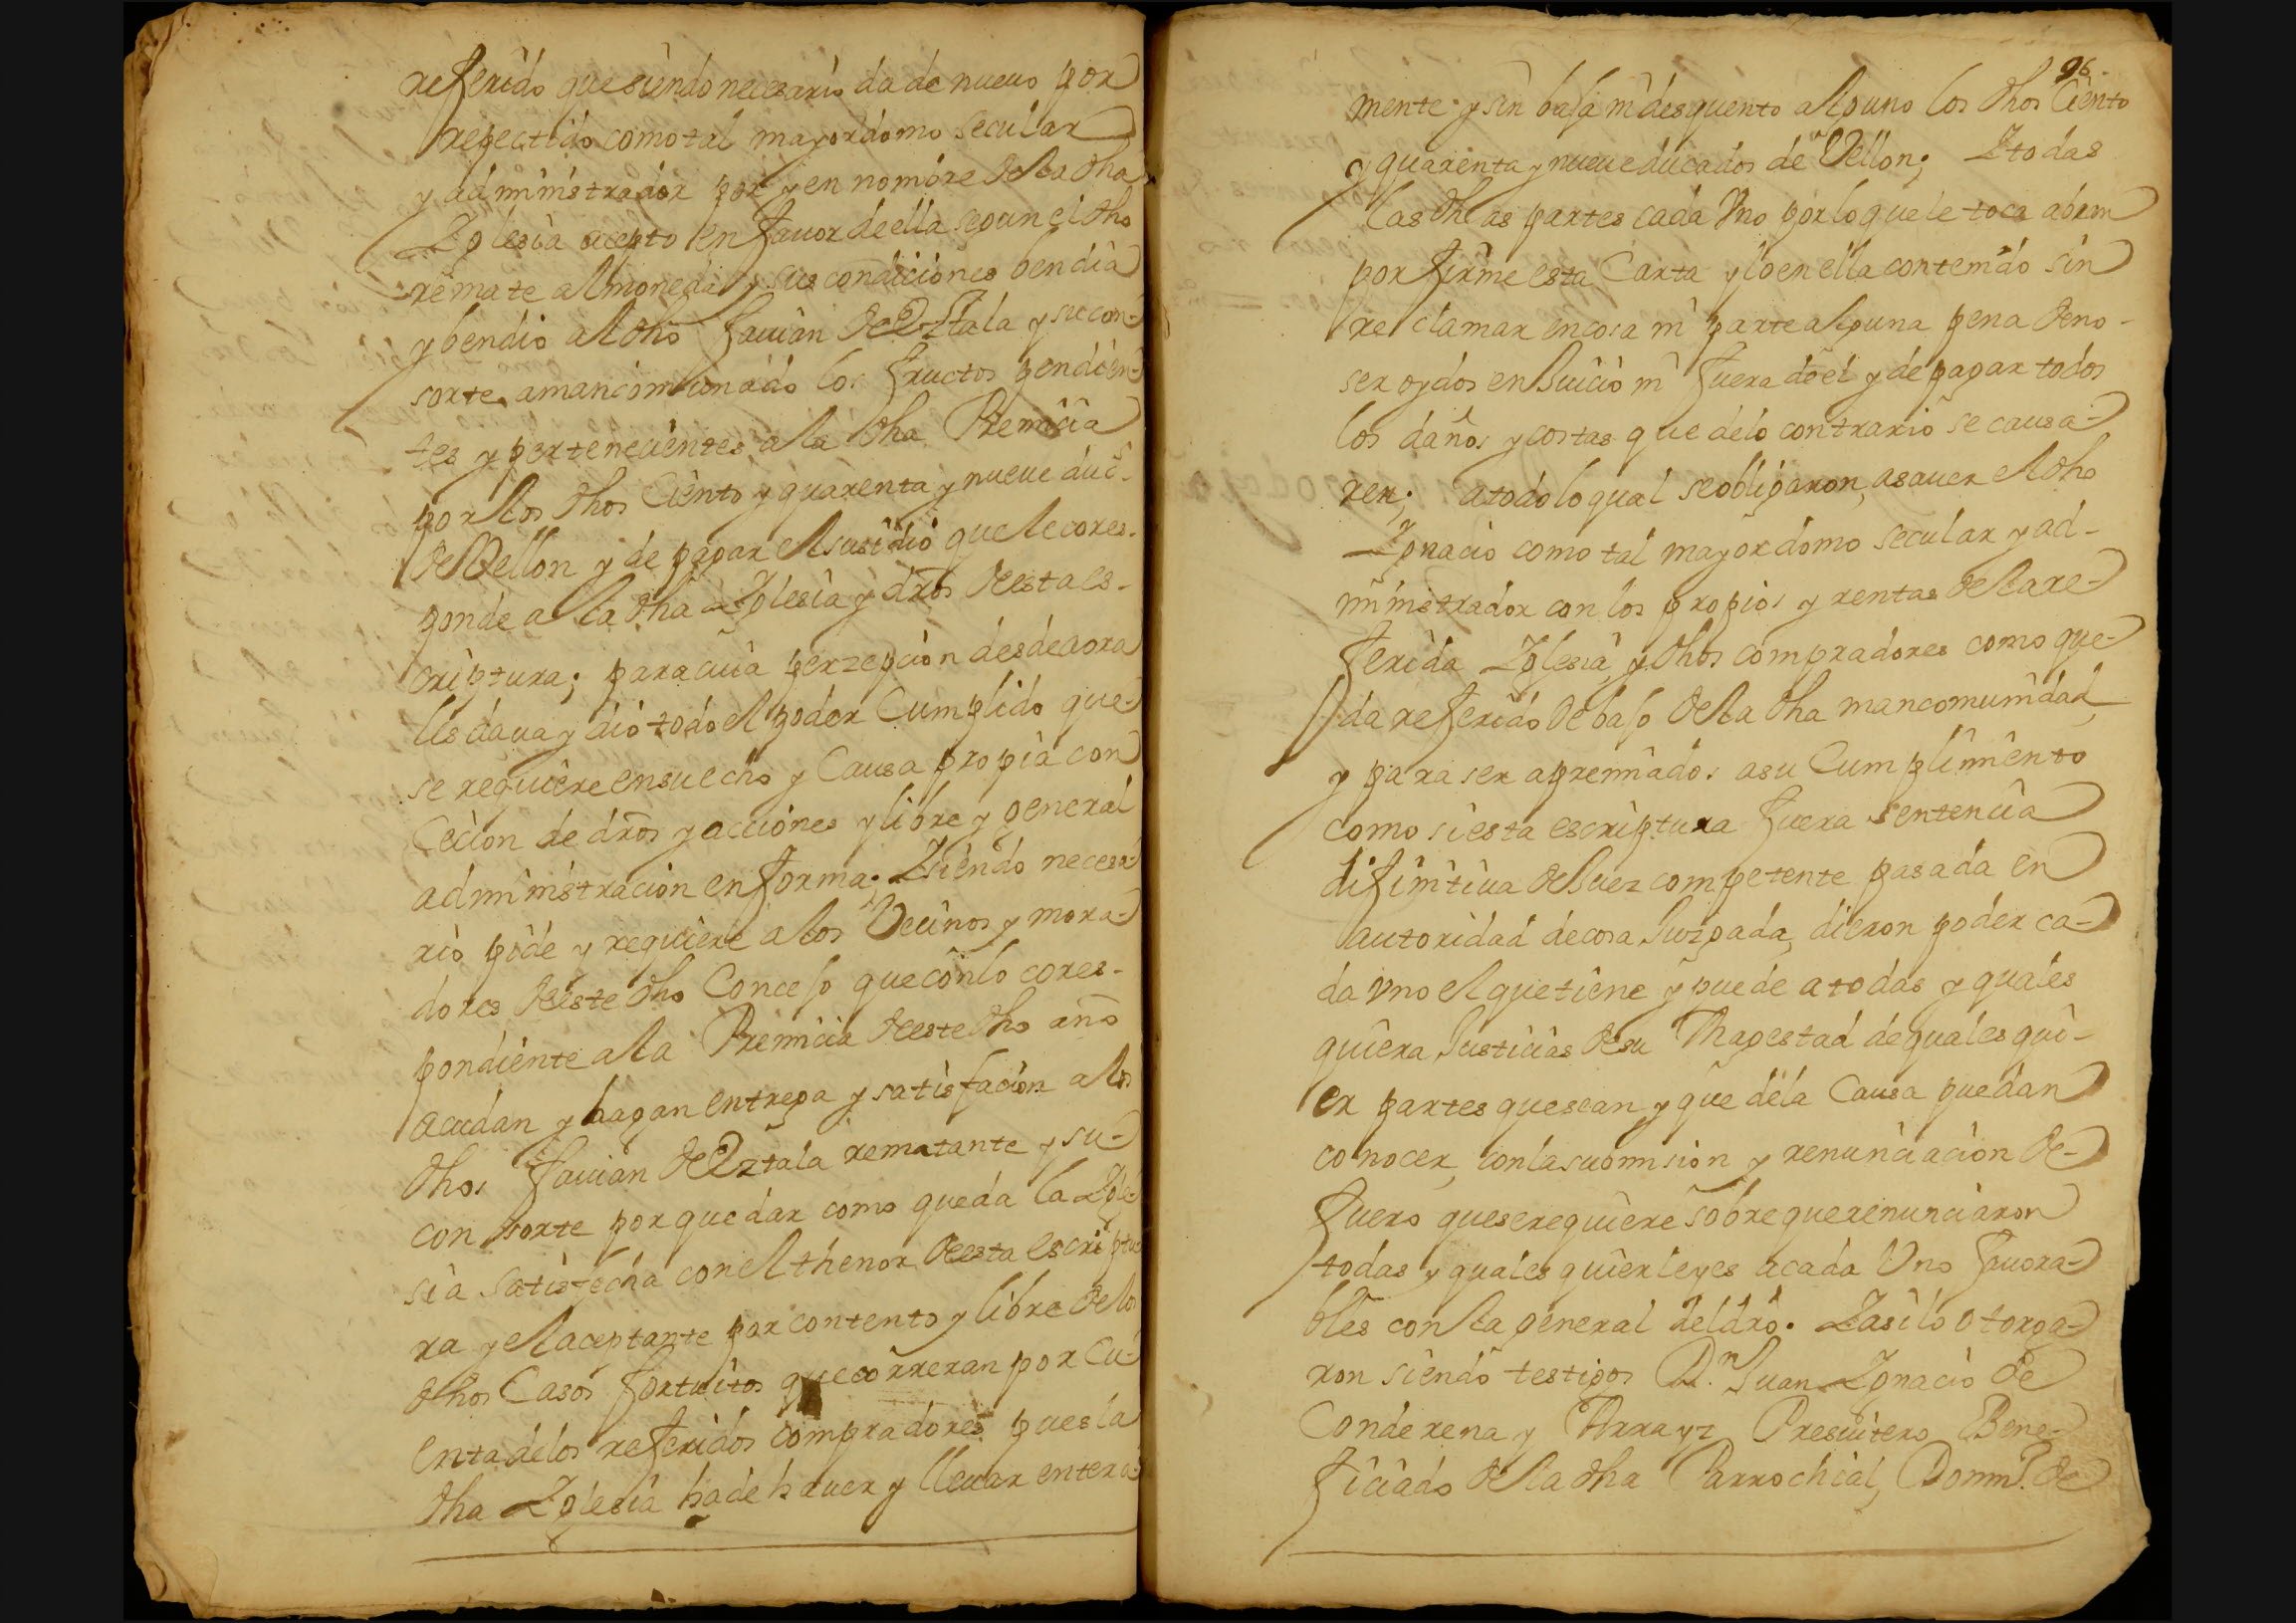 referido que siendo necesario da de nuevo por
repectido como tal mayordomo secular
y administrador por y en nombre de la dha
Iglesia acepto en favor de ella segun el dho
remate almoneda y sus condiciones bendia
y bendio al dho Favian de Oztala y su con-
sorte amancomunado los fructos pendien-
tes y pertenecientes a la dha Premicia
por los dhos Ciento y quarenta y nueve duc.s
de Vellon y de pagar el susidio que le cores-
ponde a la dha Iglesia y dros de esta es-
criptura; para cuia perzepcion desde aora
les dava y dio todo el poder Cumplido que
se requiere en su echo y Causa propia con
Cecion de dros y acciones y libre y general
administracion en forma; Isiendo necesa-
rio pide y requiere a los Vecinos y mora-
dores de este dho Concejo que con lo cores-
pondiente a la Premicia de este dho año
acudan y hagan entrega y satisfacion a los
dhos Favian de Oztala rematante y su-
consorte por quedar como queda la Igle-
sia satisfecha con el thenor de esta escriptu-
ra y el aceptante por contento y libre de los
dhos Casos fortuitos que correran por Cu-
enta de los referidos compradores pues la
dha Iglesia ha de haver y llevar entera-
96.
mente y sin baja ni desquento alguno los dhos Ciento
y quarenta y nueve ducados de Vellon; I todas
las dhas partes cada Uno por lo que le toca abran
por firme esta Carta y lo en ella contenido sin
reclamar en cosa ni parte alguna pena de no-
ser oydos en Juicio ni fuera de el y de pagar todos
los daños y costas que de lo contrario se causa-
ren; a todo lo qual se obligaron, asaver el dho
Ignacio como tal mayordomo secular y ad-
ministrador con los propios y rentas de la re-
ferida Iglesia y dhos compradores como que-
da referido debajo de la dha mancomunidad,
y para ser apremiados a su Cumplimiento
como si esta escriptura fuera sentencia
difinitiva de Juez competente pasada en
autoridad de cosa Juzgada, dieron poder ca-
da vno el que tiene y puede a todas y quales
quiera Justicias de su Magestad de quales qui-
er partes que sean y que de la Causa puedan
conocer, con la submision y renunciacion de-
fuero que se requiere sobre que renunciaron
todas y quales quier leyes a cada Uno favora-
bles con la general del dro. I asi lo otorga-
ron siendo testigos D.n Juan Ignacio de
Conderena y Arrayz Presvitero Bene-
ficiado de la dha Parrochial, Domi.o de